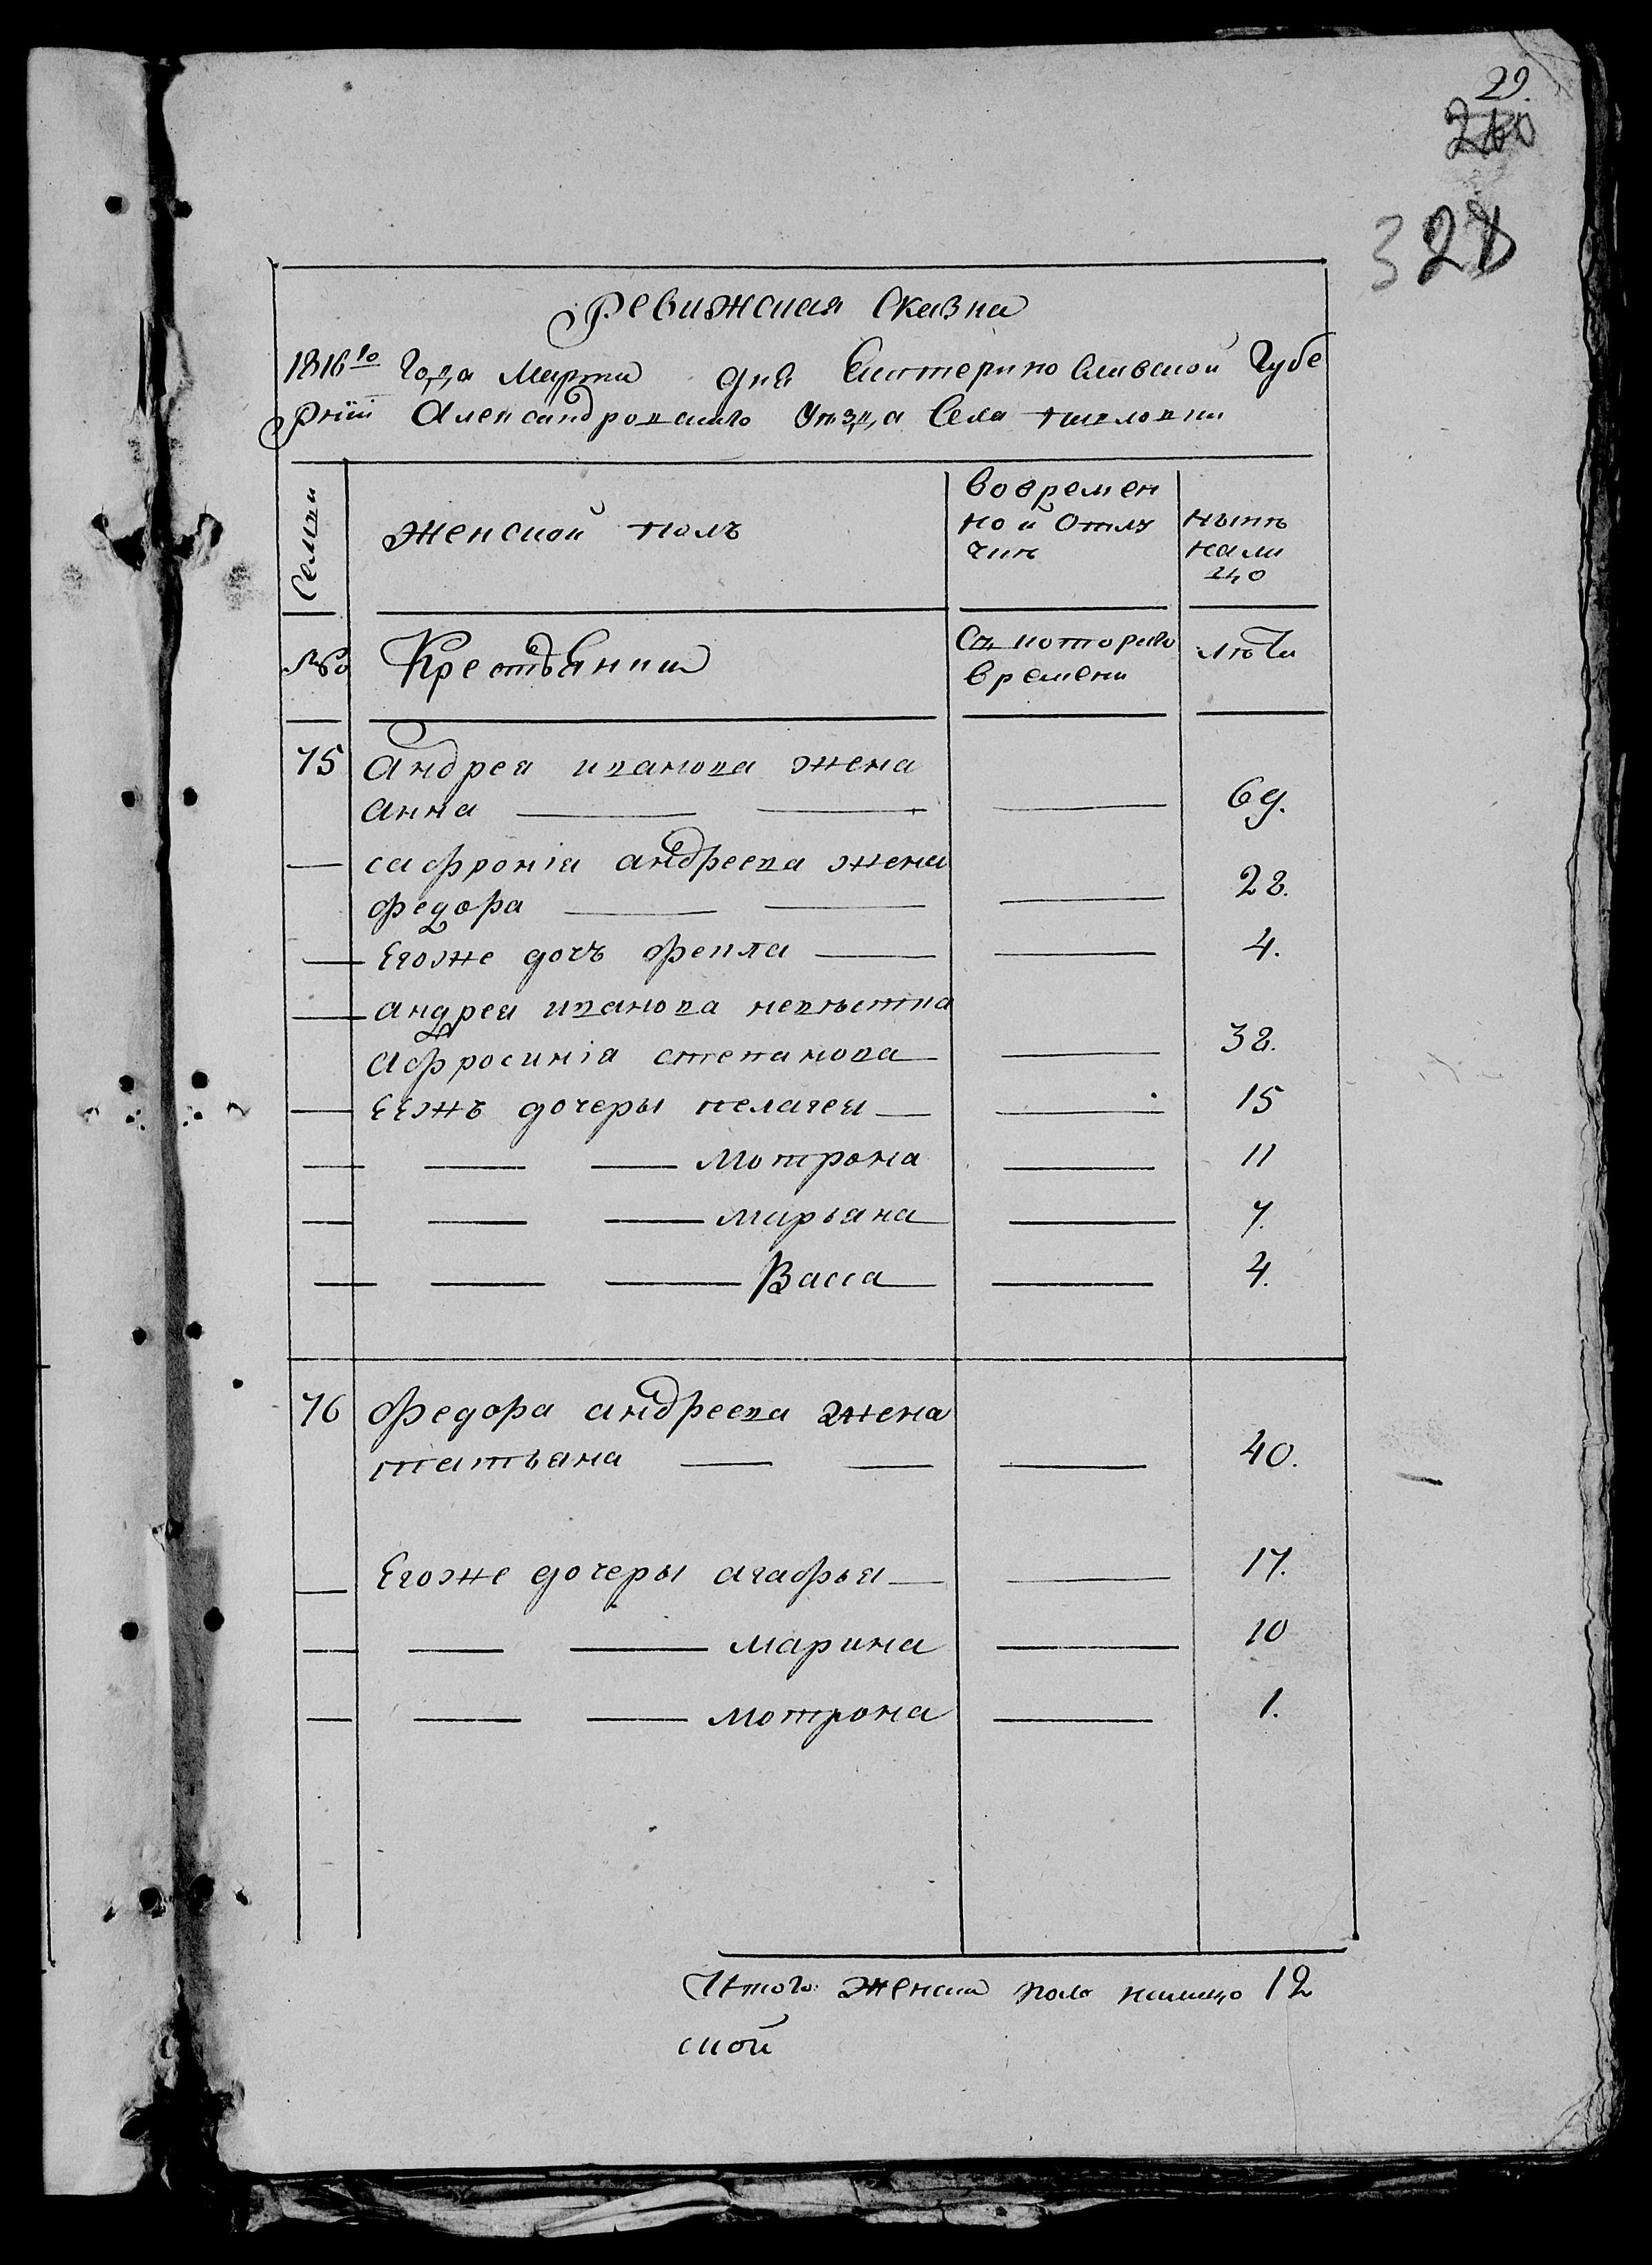 29.
328
Ревижская Сказка
1816го Года Марта дня Екатеринославской Губе
рнiи Александровскаго Уѣзда Села
Семьи
женской полъ
вовремен
ной отлу
чкѣ
нынѣ
нали
цо
№
Крестьянки
Съ котораго
времени
лѣта
75
андрея иванова жена
анна
69.
сафронiя андреева жена
федора
28.
Егоже дочъ фекла
4.
андрея иванова невѣстка
афросинiя степанова
38.
ЕЕжъ дочеры пелагея
15
мотрона
11
марьяна
7.
Васса
4.
76
федора андреева жена
татьяна
40.
Егоже дочеры агафья
17.
марина
10
мотрона
1.
Итого женска пола налицо 12
ской